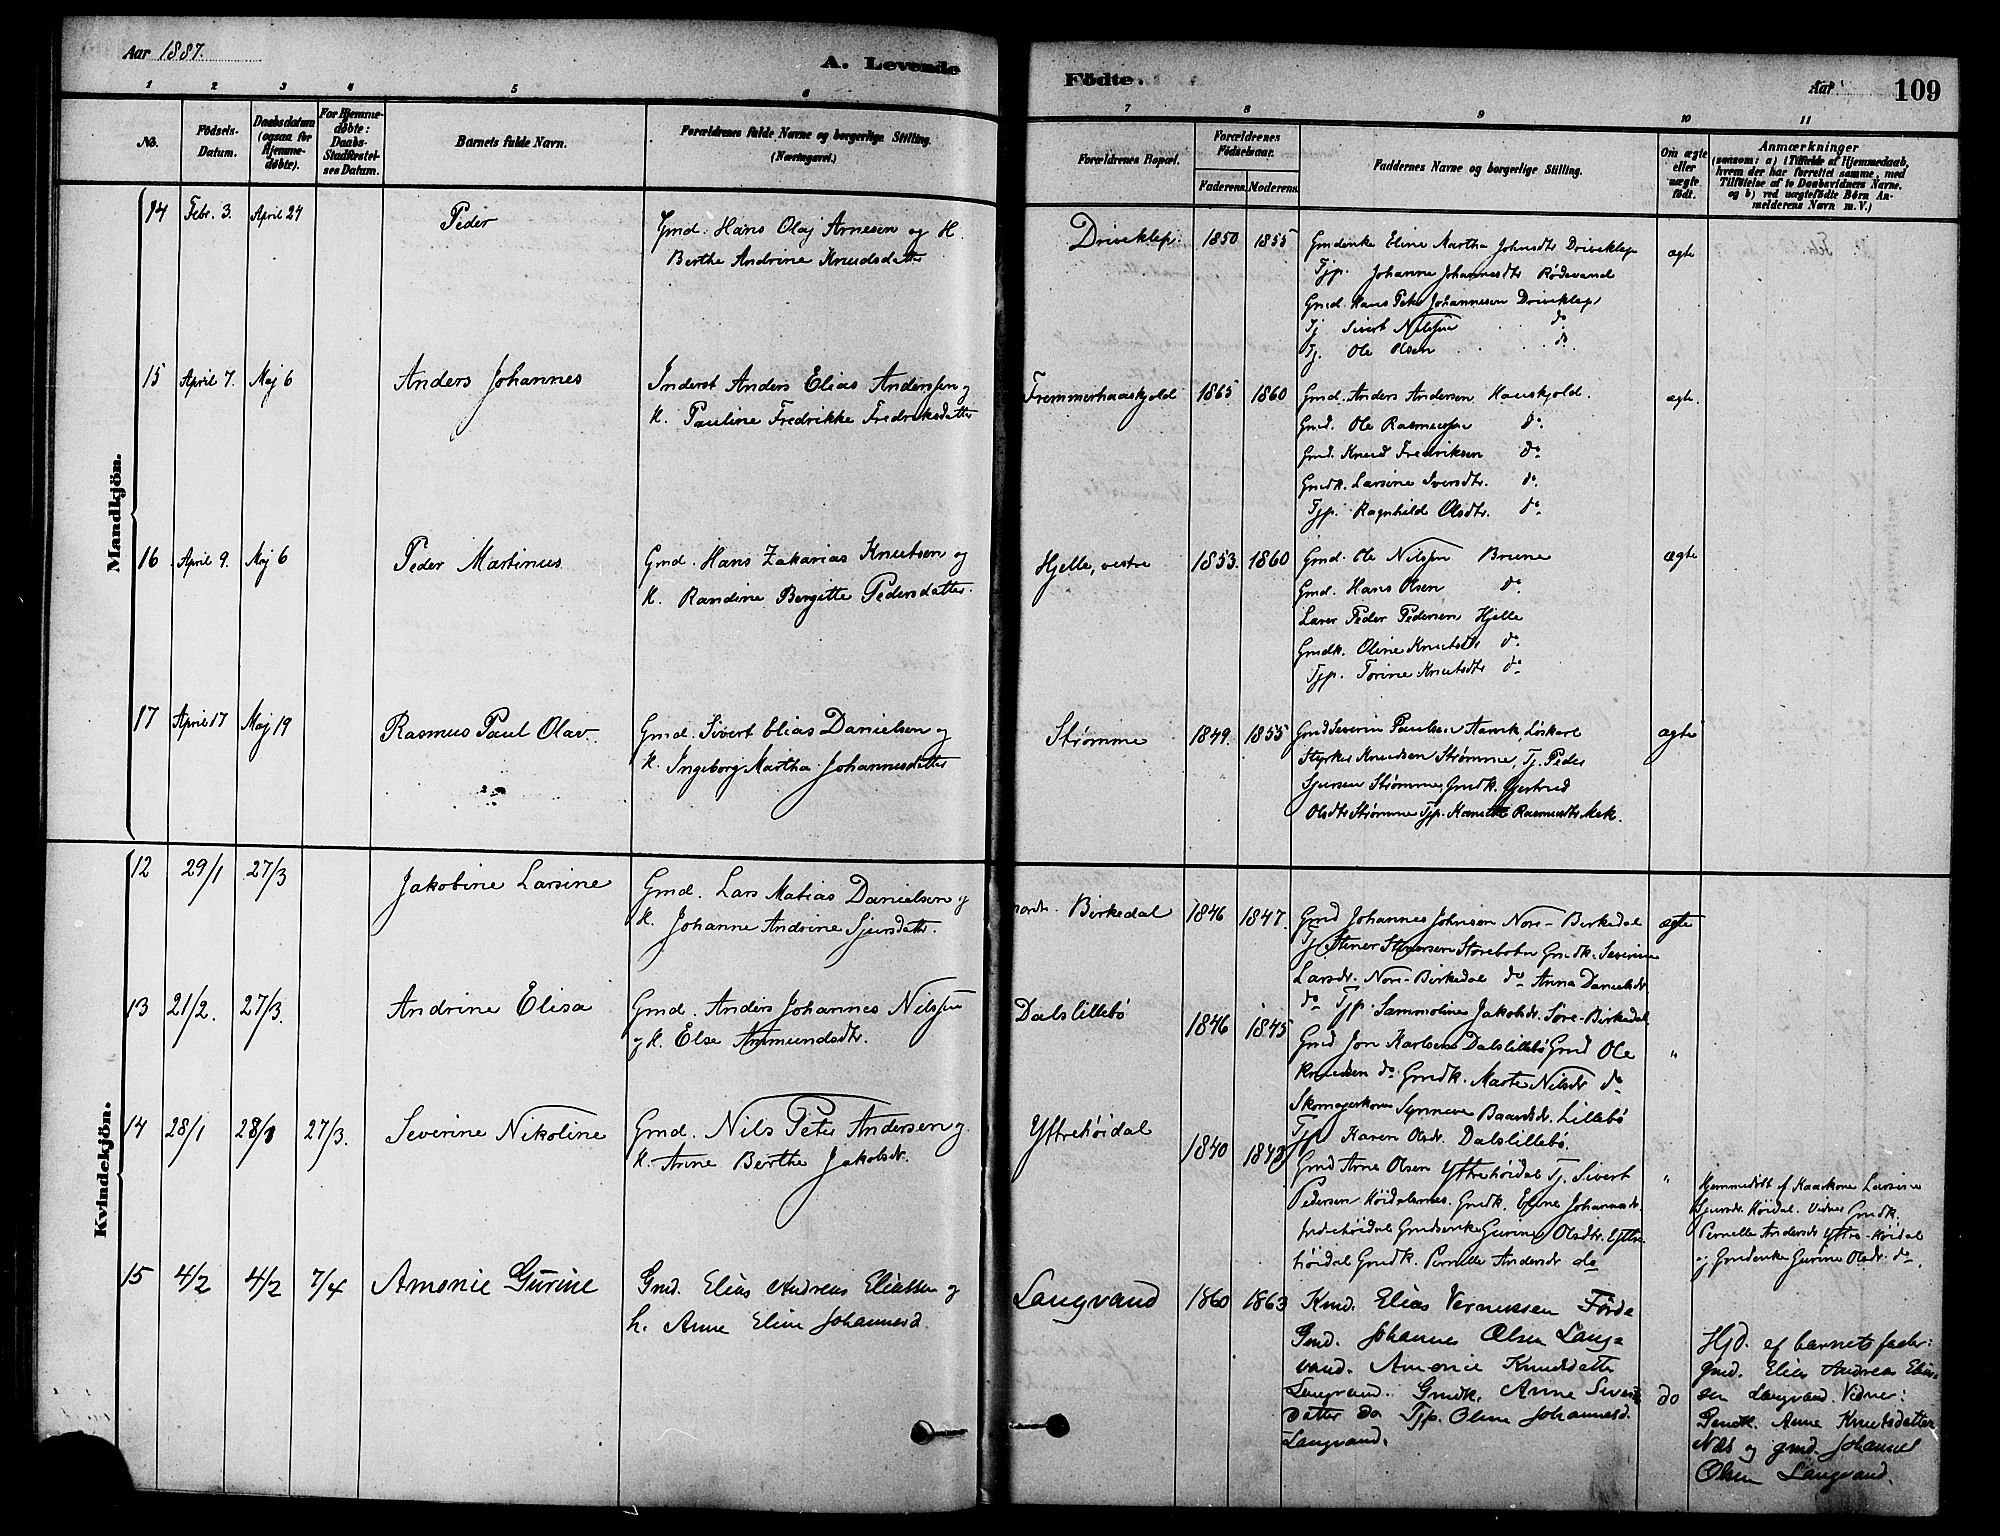 Aar 1887.
A. Levende
Födte.
Aar
109
1 2 3 4 5 6 7 8 9 10 11
No.
Födsels-Datum.
Daabsdatum (ogsaa for Hjemme-döbte).
For Hjemme-döbte: Daabs-Stadfæstel-ses Datum.
Barnets fulde Navn.
Forældrenes fulde Navne og borgerlige Stilling. (Næringsvei.)
Forældrenes Bopæl.
Forældrenes Födselsaar.
Faderens. Moderens.
Faddernes Navne og borgerlige Stilling.
Om ægte eller uægte födt.
Anmærkninger
(saasom: a) i Tilfælde af Hjemmedaab,
hvem der har forrettet samme, med
Tilföielse af to Daabsvidners Navne.
og b) ved uægtefödte Börn An-
melderens Navn m. V.)
Mandkjön.
14 Febr. 3. April 24 Peder
Gmd. Hans Olaj Arnesen og H.
Berthe Andrine Knudsdatter
Driveklep. 1850 1855
Gmdenke Eline Martha Johnsdtr Driveklep
Tjp. Johanne Johannesdtr Rødevand
Gmd. Hans Peter Johannesen Driveklep
Tj Sivert Nilssen do
Tj. Ole Olsen do.
ægte
15 April 7. Maj 6 Anders Johannes
Inderst Anders Elias Anderssen og
K. Pauline Fredrikke Fredriksdatter
Fremmerhaaskjold 1865 1860
Gmd. Anders Andersen Hauskjold.
Gmd. Ole Rasmussen do.
Gmd. Knud Fredriksen do
Gmdk. Larsine Iversdtr. do.
Tjp. Ragnhilde Olsdtr. do
ægte.
16 April 9. Maj 6 Peder Martinus
Gmd. Hans Zakarias Knutsen og
K. Randine Bergitte Pedersdatter.
Hjelle, vestre 1853. 1860
Gmd. Ole Nilssen Brune
Gmd. Hans Olsen do.
Lærer Peder Pedersen Hjelle
Gmdk. Oline Knutsdtr do.
Tjp. Torine Knutsdtr do
ægte
17 April 17 Maj 19 Rasmus Paul Olav
Gmd. Sivert Elias Danielsen og
K. Ingeborg Martha Johannesdatter
Strømme 1849. 1855
Gmd Severin Paulsen Løskarl
Styrker Knudsen Strømme, Tj. Peder
Sjursen Strømme Gmdk. Gjertrud
Olsdtr Strømme Tjp. Rasmusdtr Mek.
ægte
Kvindekjön.
12 29/1 27/3 Jakobine Larsine
Gmd. Lars Matias Danielsen og
K. Johanne Andrine Sjursdatter.
nordr. Birkedal 1846 1847.
Gmd Johannes Johnsen Nore-Birkedal
Tj Steiner Storebotn Gmdk. Severine
Larsdr. Nore-Birkedal do Anna Danielsdr.
do Tjp. Sammoline Jakobsdr. Søre-Birkedal
ægte
13 21/2. 27/3. Andrine Elisa
Gmd. Anders Johannes Nilssen
og K. Else Anmundsdtr.
Dalslillebø 1846 1845
Gmd Jon Karlsen Dalslillebø Gmd Ole
Knudsen do Gmdk. Marte Nilsdr do
Skomagerkone Synneve Baardsdr. Lillebø
Tjp Karen Olsdr. Dalslillebø.
"
14 28/1 28/1 27/3. Severine Nikoline
Gmd. Nils Peter Andersen og
K. Anne Berthe Jakobsdr.
Yttrehöidal 1840 1842
Gmd Arne Olsen Yttrehöidal Tj. Sivert
Pedersen Höidalsnes. Gmdk. Eline Johannesdr.
Indrehöidal Gmdenke Gurine Olsdtr. Yttre-
höidal Gmdk. Pernelle Andersdr do
"
Hjemmedöbt af Kaarkone Larsine
Sjursdr. Höidal. Vidner Gmdk.
Pernelle Andersdr Yttre-Höidal
og Gmdenke Gurine Olsdr. do.
15 4/2 4/2 7/4 Amonie Gurine
Gmd. Elias Andreas Eliassen og
h. Anne Eline Johannesd.
Langvand 1860 1863
Kmd. Elias Vernussen Förde
Gmd. Johanne Olsen Lang-
vand. Amonie Knudsdatter
Langvand. Gmdk. Anne Siverts
datter do Tjp. Oline Johannesd.
Langvand.
do
Hjd. af barnets fader:
gmd. Elias Andreas Elias-
sen Langvand. Vidner:
Gmdk. Anne Knutsdatter
Næs og gmd. Johannes
Olsen Langvand.